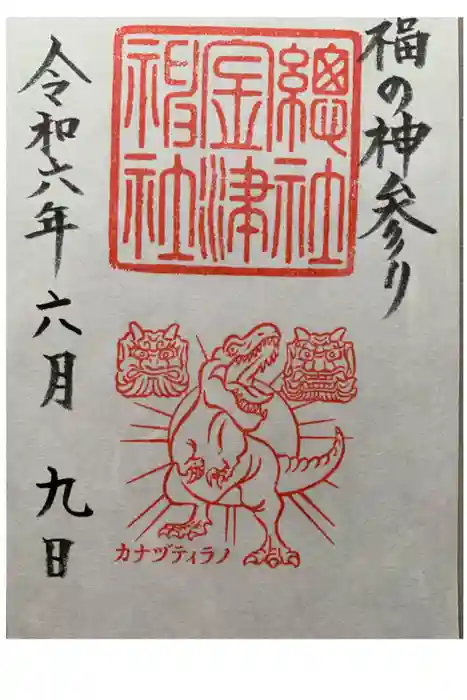 福の神参り
總社
金津
神社
カナヅティラノ
令和六年六月九日